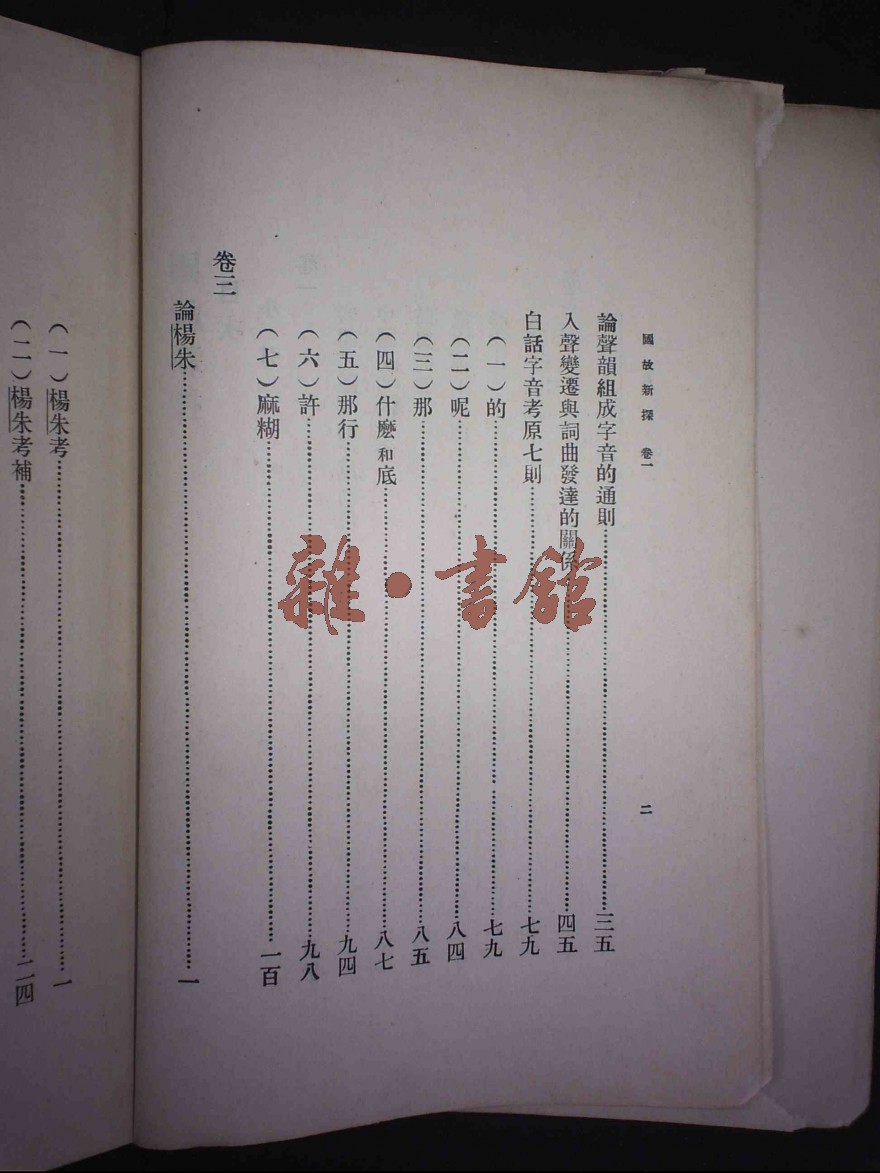 國故新探 卷一 二
論聲韻組成字音的通則……三五
入聲變遷與詞曲發達的關係……四五
白話字音考原七則……七九
(一)的……七九
(二)呢……八四
(三)那……八五
(四)什麼和底……八七
(五)那行……九四
(六)許……九八
(七)麻糊……一百
卷三
論楊朱……一
(一)楊朱考……一
(二)楊朱考補……二四
雜·書館